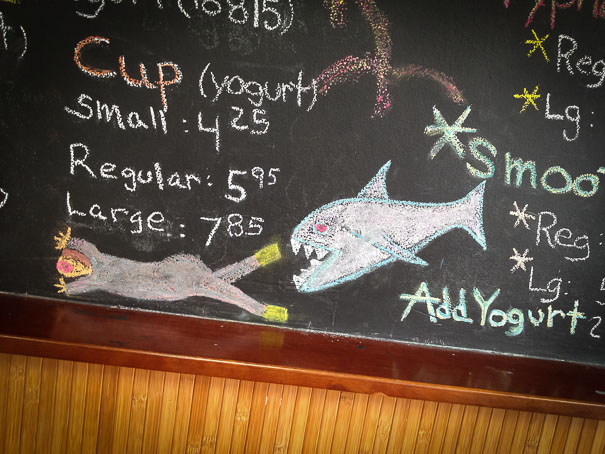 (16815)
Cup (yogurt)
Small: 4 25
Regular: 5 95
Large: 7 85
* Reg
* Lg:
* Smoo
* Reg:
* Lg:
Add Yogurt